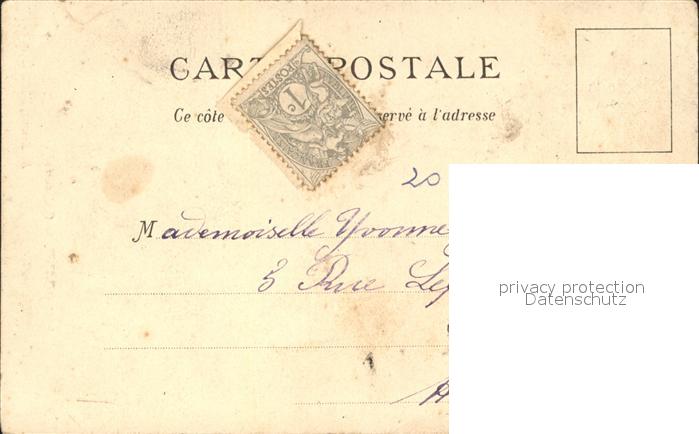 CARTE POSTALE
POSTES
1
Ce côté réservé à l'adresse
20
Mademoiselle Yvonne
3 Rue Lep
privacy protection
Datenschutz